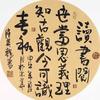 讀書閱
世當思義理
知古觀今可識
春秋